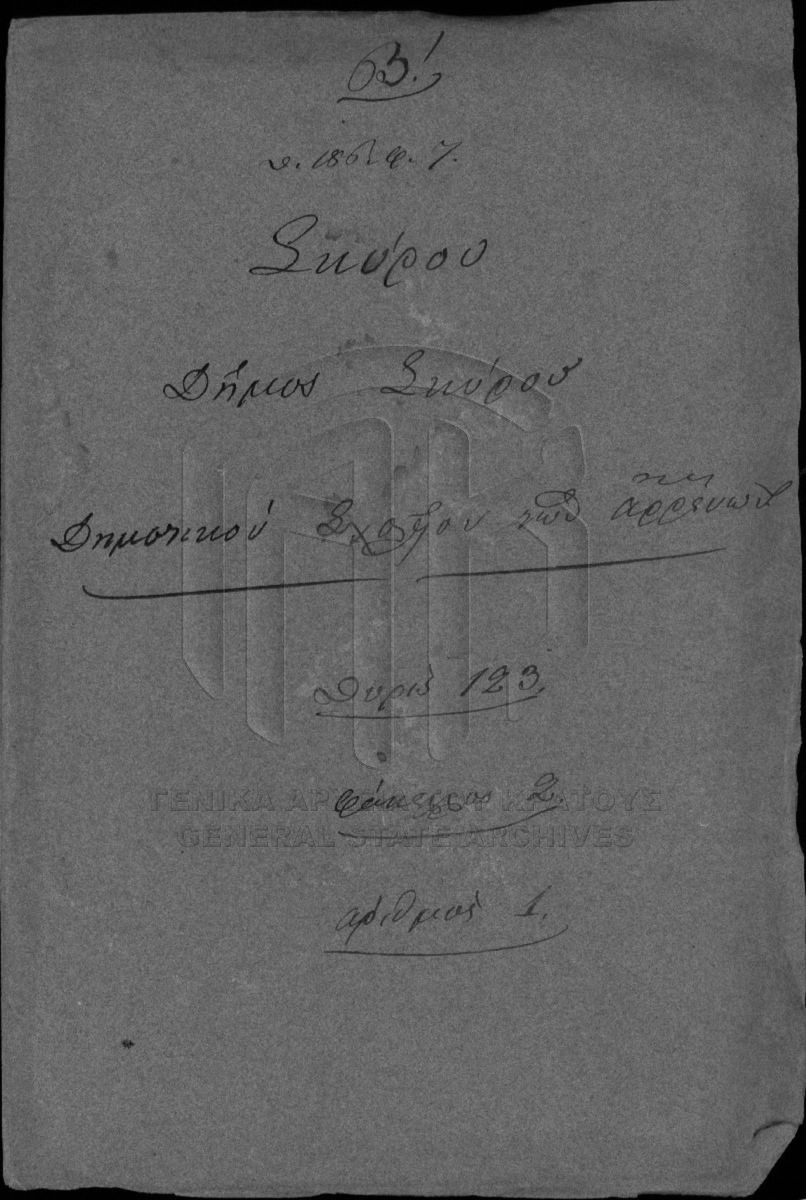 Β!
θ. 186. φ. 7.
Σκύρου
Δῆμος Σκύρου
Δημοτικοῦ Σχολείου τῶν ἀρρένων
Θυρὶς 123.
φάκελλος 2.
ΓΕΝΙΚΑ ΑΡΧΕΙΑ ΤΟΥ ΚΡΑΤΟΥΣ
GENERAL STATE ARCHIVES
ἀριθμὸς 1.